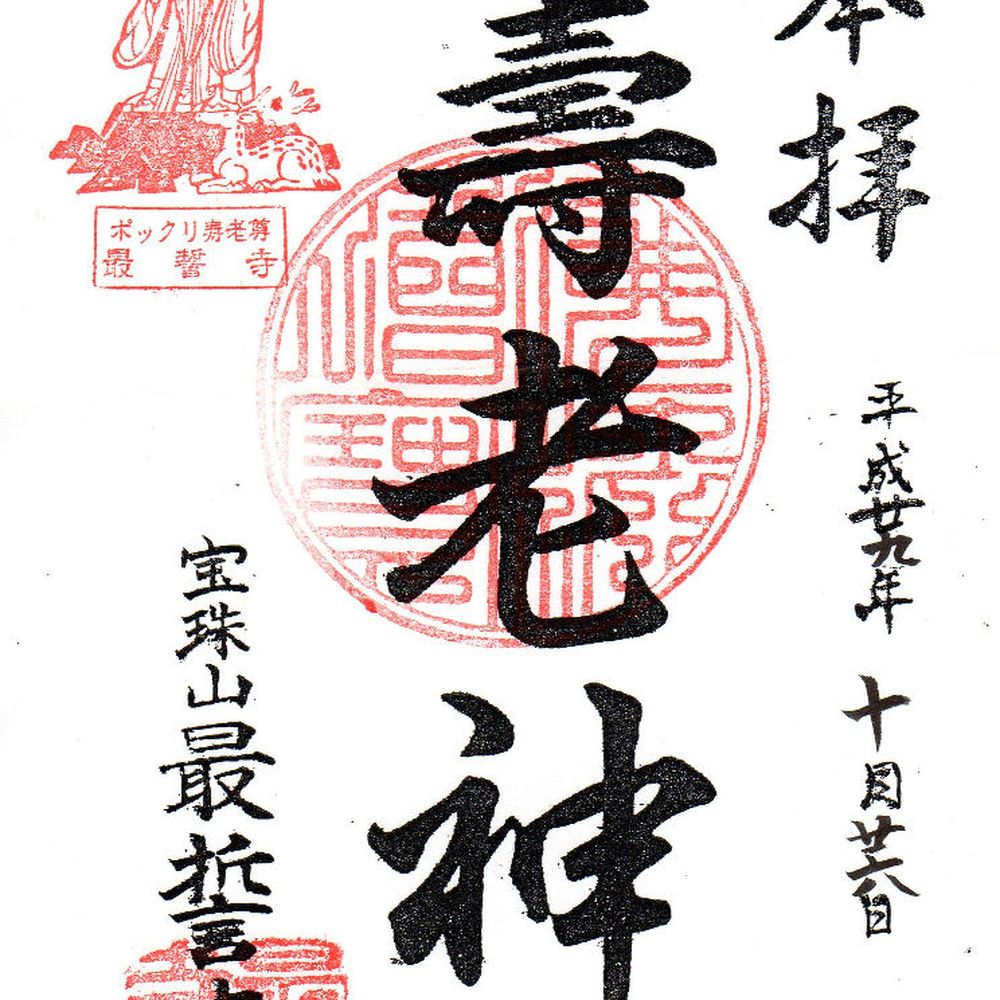 奉拝
平成廿九年 十月廿六日
壽老神
ポックリ寿老尊
最誓寺
宝珠山最誓